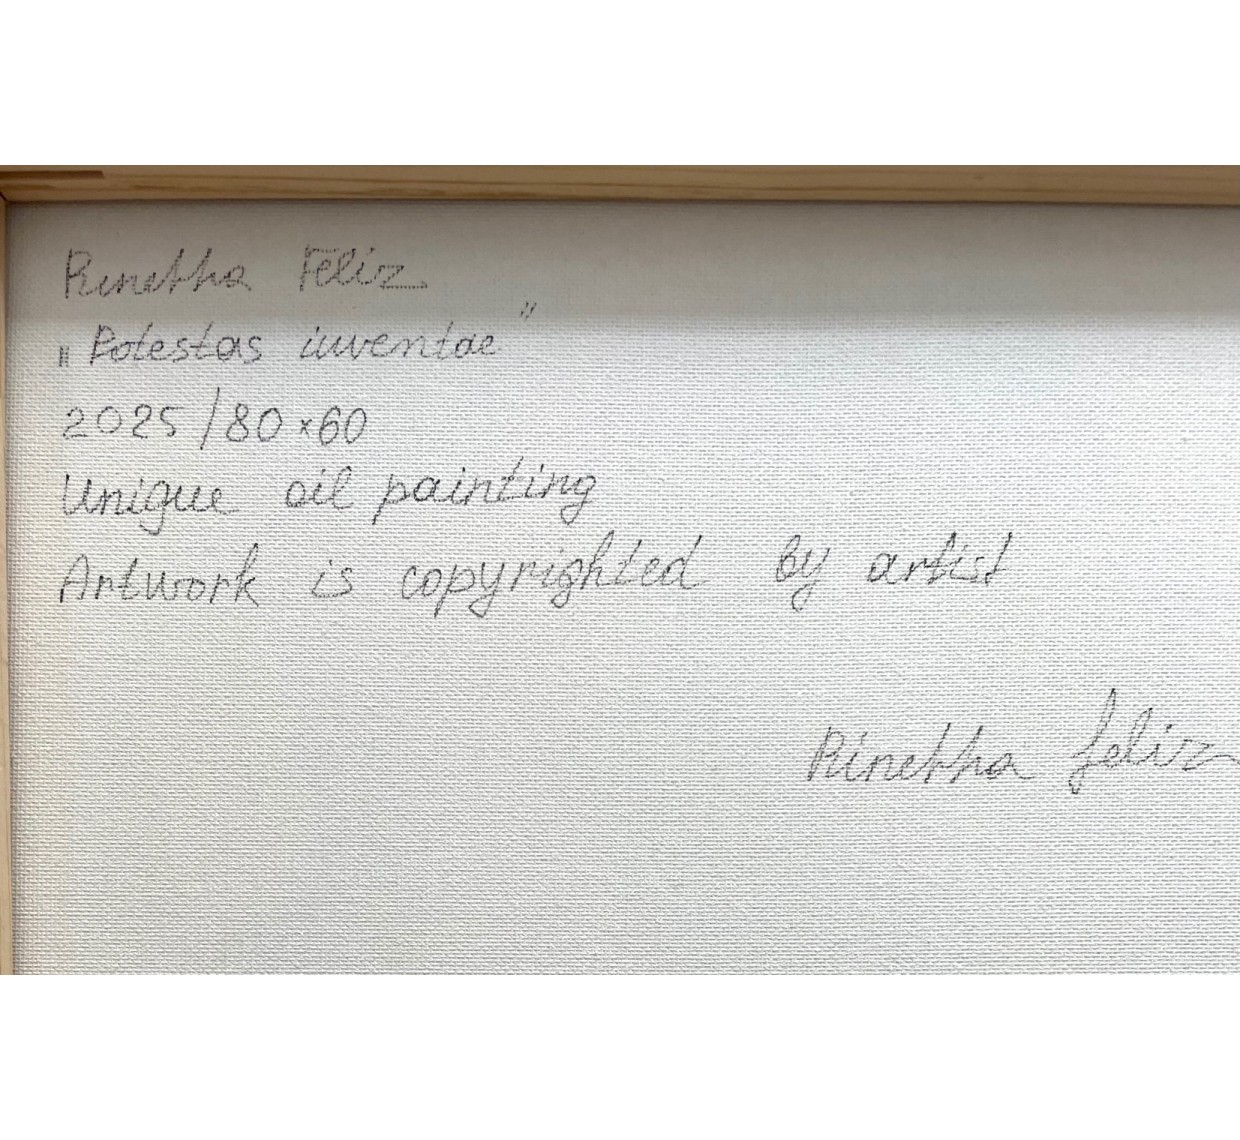 Rinetha Feliz
„Potestas iuventae"
2025 / 80 x 60
Unique oil painting
Artwork is copyrighted by artist
Rinetha feliz